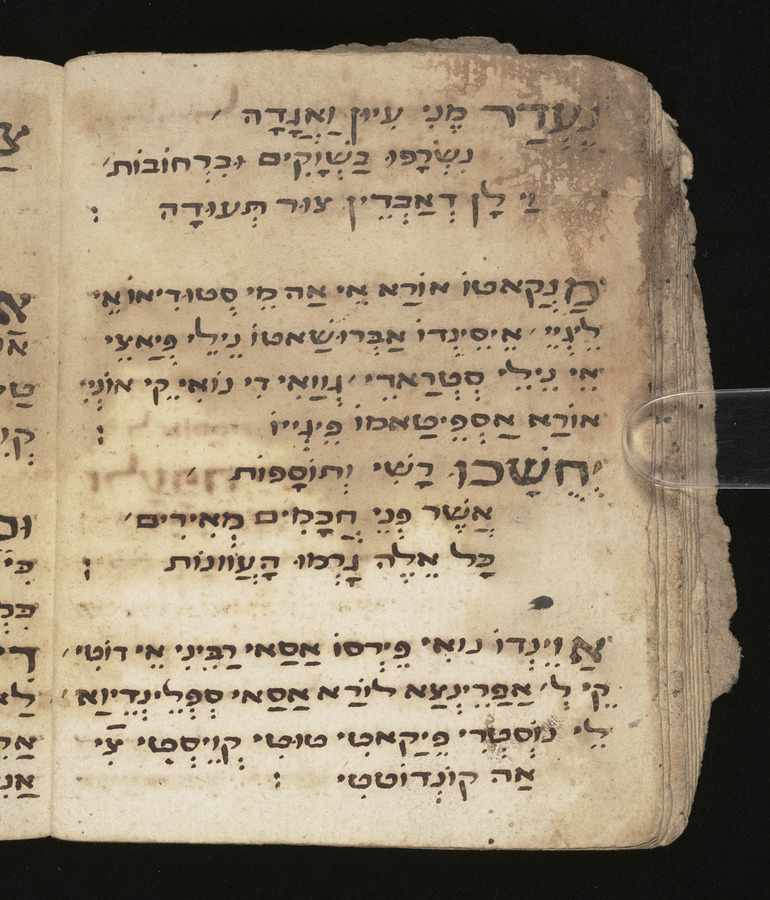 נֶעְדַר מֶנִי עִיוּן וַאֲגָדָה
נִשְׂרָפוּ בַּשְׁוָקִים וּבִרְחוֹבוֹת
וַי לָן דְאַבְּדִין צוּר תְּעוּדָה :
מַנְקַאטוֹ אוֹרַא אֵי אַה מֵי סְטוּדִיאוֹ אֵי
לֵיגְיֵי אֵיסֵינְדוֹ אַבְּרוּשַׁאטוֹ נֵילֵי פְּיַאצֵי
אֵי נֵילֵי סְטְרַאדֵי גְוַואִי דִי נוֹאִי קֵי אוֹנְיִי
אוֹרַא אַסְפֵּיטַאמוֹ פֵּיגְיוֹ :
יֶחֱשָׁכוּ רָשִׁי וְתוֹסָפוֹת
אֲשֶׁר פְּנֵי חֲכָמִים מְאִירִים
כָּל אֵלֶּה גָרְמוּ הָעֲוֹונוֹת :
אַוֵינְדוֹ נוֹאִי פֵּירְסוֹ אַסַאי רַבִּינִי אֵי דוֹטִי
קֵי לְ אַפַּרֵינְצַא לוֹרַא אַסַאי סְפְּלֵינְדֵיוַא
לֵי נוֹסְטְרִי פֵּיקַאטִי טוּטִי קְוֵיסְטִי צִי
אַה קוֹנְדוֹטטִי :